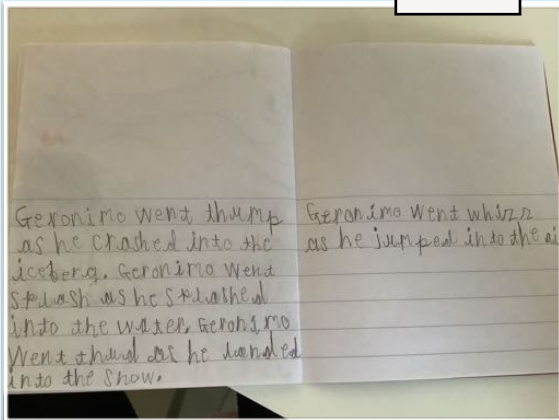 Geronimo went thump
as he crashed into the
iceberg. Geronimo went
splash as he splashed
into the water. Geronimo
went thud as he landed
into the snow.
Geronimo went whizz
as he jumped into the ai